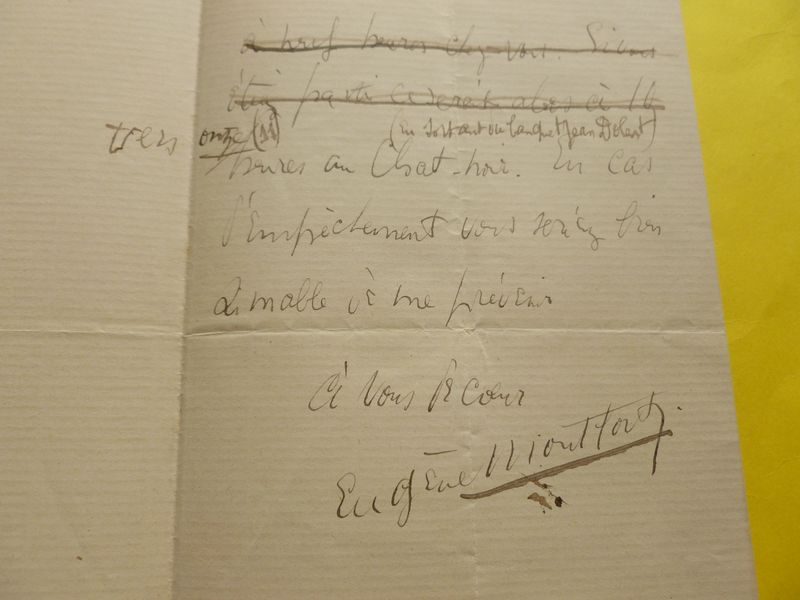 à neuf heures chez vous. Si vous
étiez parti ce serait alors à 10
vers onze (11) (en sortant du banquet Jean Dolent)
heures au Chat-noir. En cas
d'Empêchement vous seriez bien
aimable de me prévenir
à vous de cœur
Eugène Montfort.